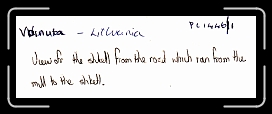 Vidiniuta - Lithuania PC1446/1
View of the shtetl from the road which ran from the
mill to the shtetl.